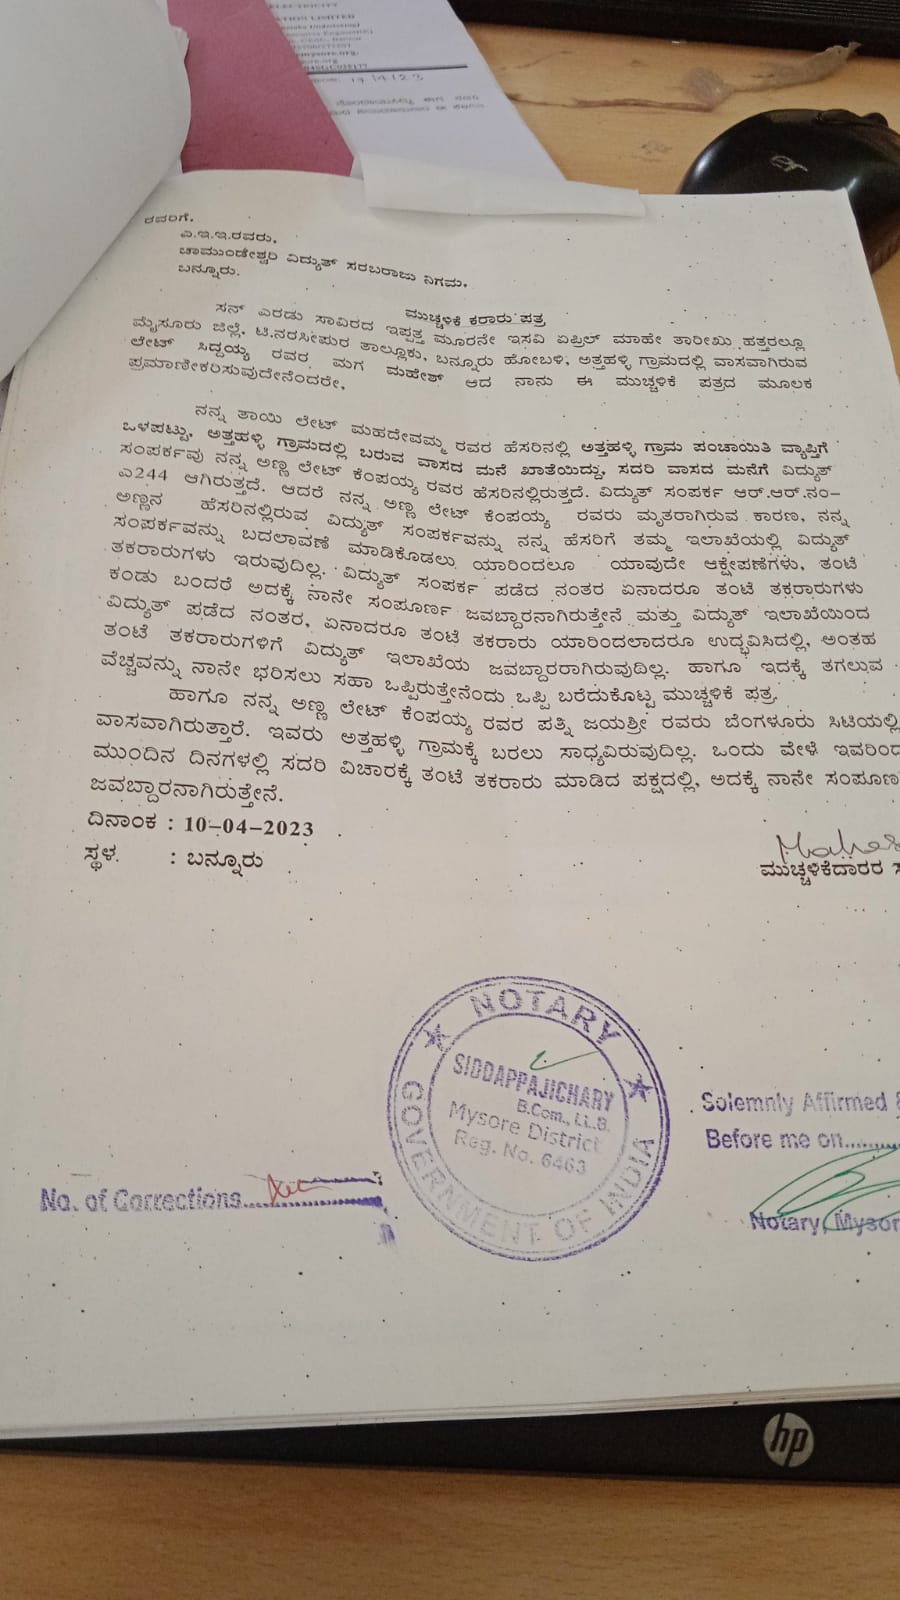 ELECTRICITY
ATION LIMITED
mysore.org.
14/4/23
ರವರಿಗೆ,
ಎ.ಇ.ಇ.ರವರು,
ಚಾಮುಂಡೇಶ್ವರಿ ವಿದ್ಯುತ್ ಸರಬರಾಜು ನಿಗಮ,
ಬನ್ನೂರು.
ಮುಚ್ಚಳಿಕೆ ಕರಾರು ಪತ್ರ
ಸನ್ ಎರಡು ಸಾವಿರದ ಇಪ್ಪತ್ತ ಮೂರನೇ ಇಸವಿ ಏಪ್ರಿಲ್ ಮಾಹೇ ತಾರೀಖು ಹತ್ತರಲ್ಲೂ
ಮೈಸೂರು ಜಿಲ್ಲೆ, ಟಿ.ನರಸೀಪುರ ತಾಲ್ಲೂಕು, ಬನ್ನೂರು ಹೋಬಳಿ, ಅತ್ತಹಳ್ಳಿ ಗ್ರಾಮದಲ್ಲಿ ವಾಸವಾಗಿರುವ
ಲೇಟ್ ಸಿದ್ದಯ್ಯ ರವರ ಮಗ ಮಹೇಶ್ ಆದ ನಾನು ಈ ಮುಚ್ಚಳಿಕೆ ಪತ್ರದ ಮೂಲಕ
ಪ್ರಮಾಣೀಕರಿಸುವುದೇನೆಂದರೇ,
ನನ್ನ ತಾಯಿ ಲೇಟ್ ಮಹದೇವಮ್ಮ ರವರ ಹೆಸರಿನಲ್ಲಿ ಅತ್ತಹಳ್ಳಿ ಗ್ರಾಮ ಪಂಚಾಯಿತಿ ವ್ಯಾಪ್ತಿಗೆ
ಒಳಪಟ್ಟು, ಅತ್ತಹಳ್ಳಿ ಗ್ರಾಮದಲ್ಲಿ ಬರುವ ವಾಸದ ಮನೆ ಖಾತೆಯಿದ್ದು, ಸದರಿ ವಾಸದ ಮನೆಗೆ ವಿದ್ಯುತ್
ಸಂಪರ್ಕವು ನನ್ನ ಅಣ್ಣ ಲೇಟ್ ಕೆಂಪಯ್ಯ ರವರ ಹೆಸರಿನಲ್ಲಿರುತ್ತದೆ. ವಿದ್ಯುತ್ ಸಂಪರ್ಕ ಆರ್.ಆರ್.ನಂ-
ಎ244 ಆಗಿರುತ್ತದೆ. ಆದರೆ ನನ್ನ ಅಣ್ಣ ಲೇಟ್ ಕೆಂಪಯ್ಯ ರವರು ಮೃತರಾಗಿರುವ ಕಾರಣ, ನನ್ನ
ಅಣ್ಣನ ಹೆಸರಿನಲ್ಲಿರುವ ವಿದ್ಯುತ್ ಸಂಪರ್ಕವನ್ನು ನನ್ನ ಹೆಸರಿಗೆ ತಮ್ಮ ಇಲಾಖೆಯಲ್ಲಿ ವಿದ್ಯುತ್
ಸಂಪರ್ಕವನ್ನು ಬದಲಾವಣೆ ಮಾಡಿಕೊಡಲು ಯಾರಿಂದಲೂ ಯಾವುದೇ ಆಕ್ಷೇಪಣೆಗಳು, ತಂಟೆ
ತಕರಾರುಗಳು ಇರುವುದಿಲ್ಲ. ವಿದ್ಯುತ್ ಸಂಪರ್ಕ ಪಡೆದ ನಂತರ ಏನಾದರೂ ತಂಟೆ ತಕರಾರುಗಳು
ಕಂಡು ಬಂದರೆ ಅದಕ್ಕೆ ನಾನೇ ಸಂಪೂರ್ಣ ಜವಬ್ದಾರನಾಗಿರುತ್ತೇನೆ ಮತ್ತು ವಿದ್ಯುತ್ ಇಲಾಖೆಯಿಂದ
ವಿದ್ಯುತ್ ಪಡೆದ ನಂತರ, ಏನಾದರೂ ತಂಟೆ ತಕರಾರು ಯಾರಿಂದಲಾದರೂ ಉದ್ಭವಿಸಿದಲ್ಲಿ, ಅಂತಹ
ತಂಟೆ ತಕರಾರುಗಳಿಗೆ ವಿದ್ಯುತ್ ಇಲಾಖೆಯ ಜವಬ್ದಾರರಾಗಿರುವುದಿಲ್ಲ. ಹಾಗೂ ಇದಕ್ಕೆ ತಗಲುವ
ವೆಚ್ಚವನ್ನು ನಾನೇ ಭರಿಸಲು ಸಹಾ ಒಪ್ಪಿರುತ್ತೇನೆಂದು ಒಪ್ಪಿ ಬರೆದುಕೊಟ್ಟ ಮುಚ್ಚಳಿಕೆ ಪತ್ರ.
ಹಾಗೂ ನನ್ನ ಅಣ್ಣ ಲೇಟ್ ಕೆಂಪಯ್ಯ ರವರ ಪತ್ನಿ ಜಯಶ್ರೀ ರವರು ಬೆಂಗಳೂರು ಸಿಟಿಯಲ್ಲಿ
ವಾಸವಾಗಿರುತ್ತಾರೆ. ಇವರು ಅತ್ತಹಳ್ಳಿ ಗ್ರಾಮಕ್ಕೆ ಬರಲು ಸಾಧ್ಯವಿರುವುದಿಲ್ಲ. ಒಂದು ವೇಳೆ ಇವರಿಂದ
ಮುಂದಿನ ದಿನಗಳಲ್ಲಿ ಸದರಿ ವಿಚಾರಕ್ಕೆ ತಂಟೆ ತಕರಾರು ಮಾಡಿದ ಪಕ್ಷದಲ್ಲಿ, ಅದಕ್ಕೆ ನಾನೇ ಸಂಪೂರ್ಣ
ಜವಬ್ದಾರನಾಗಿರುತ್ತೇನೆ.
ದಿನಾಂಕ : 10-04-2023
ಸ್ಥಳ : ಬನ್ನೂರು
Mahes
ಮುಚ್ಚಳಿಕೆದಾರರ ಸ
NOTARY
GOVERNMENT OF INDIA
SIDDAPPAJICHARY
B.Com., LL.B.
Mysore District
Reg. No. 6463
Solemnly Affirmed &
Before me on..........
No. of Corrections....................
Notary, Mysor
hp